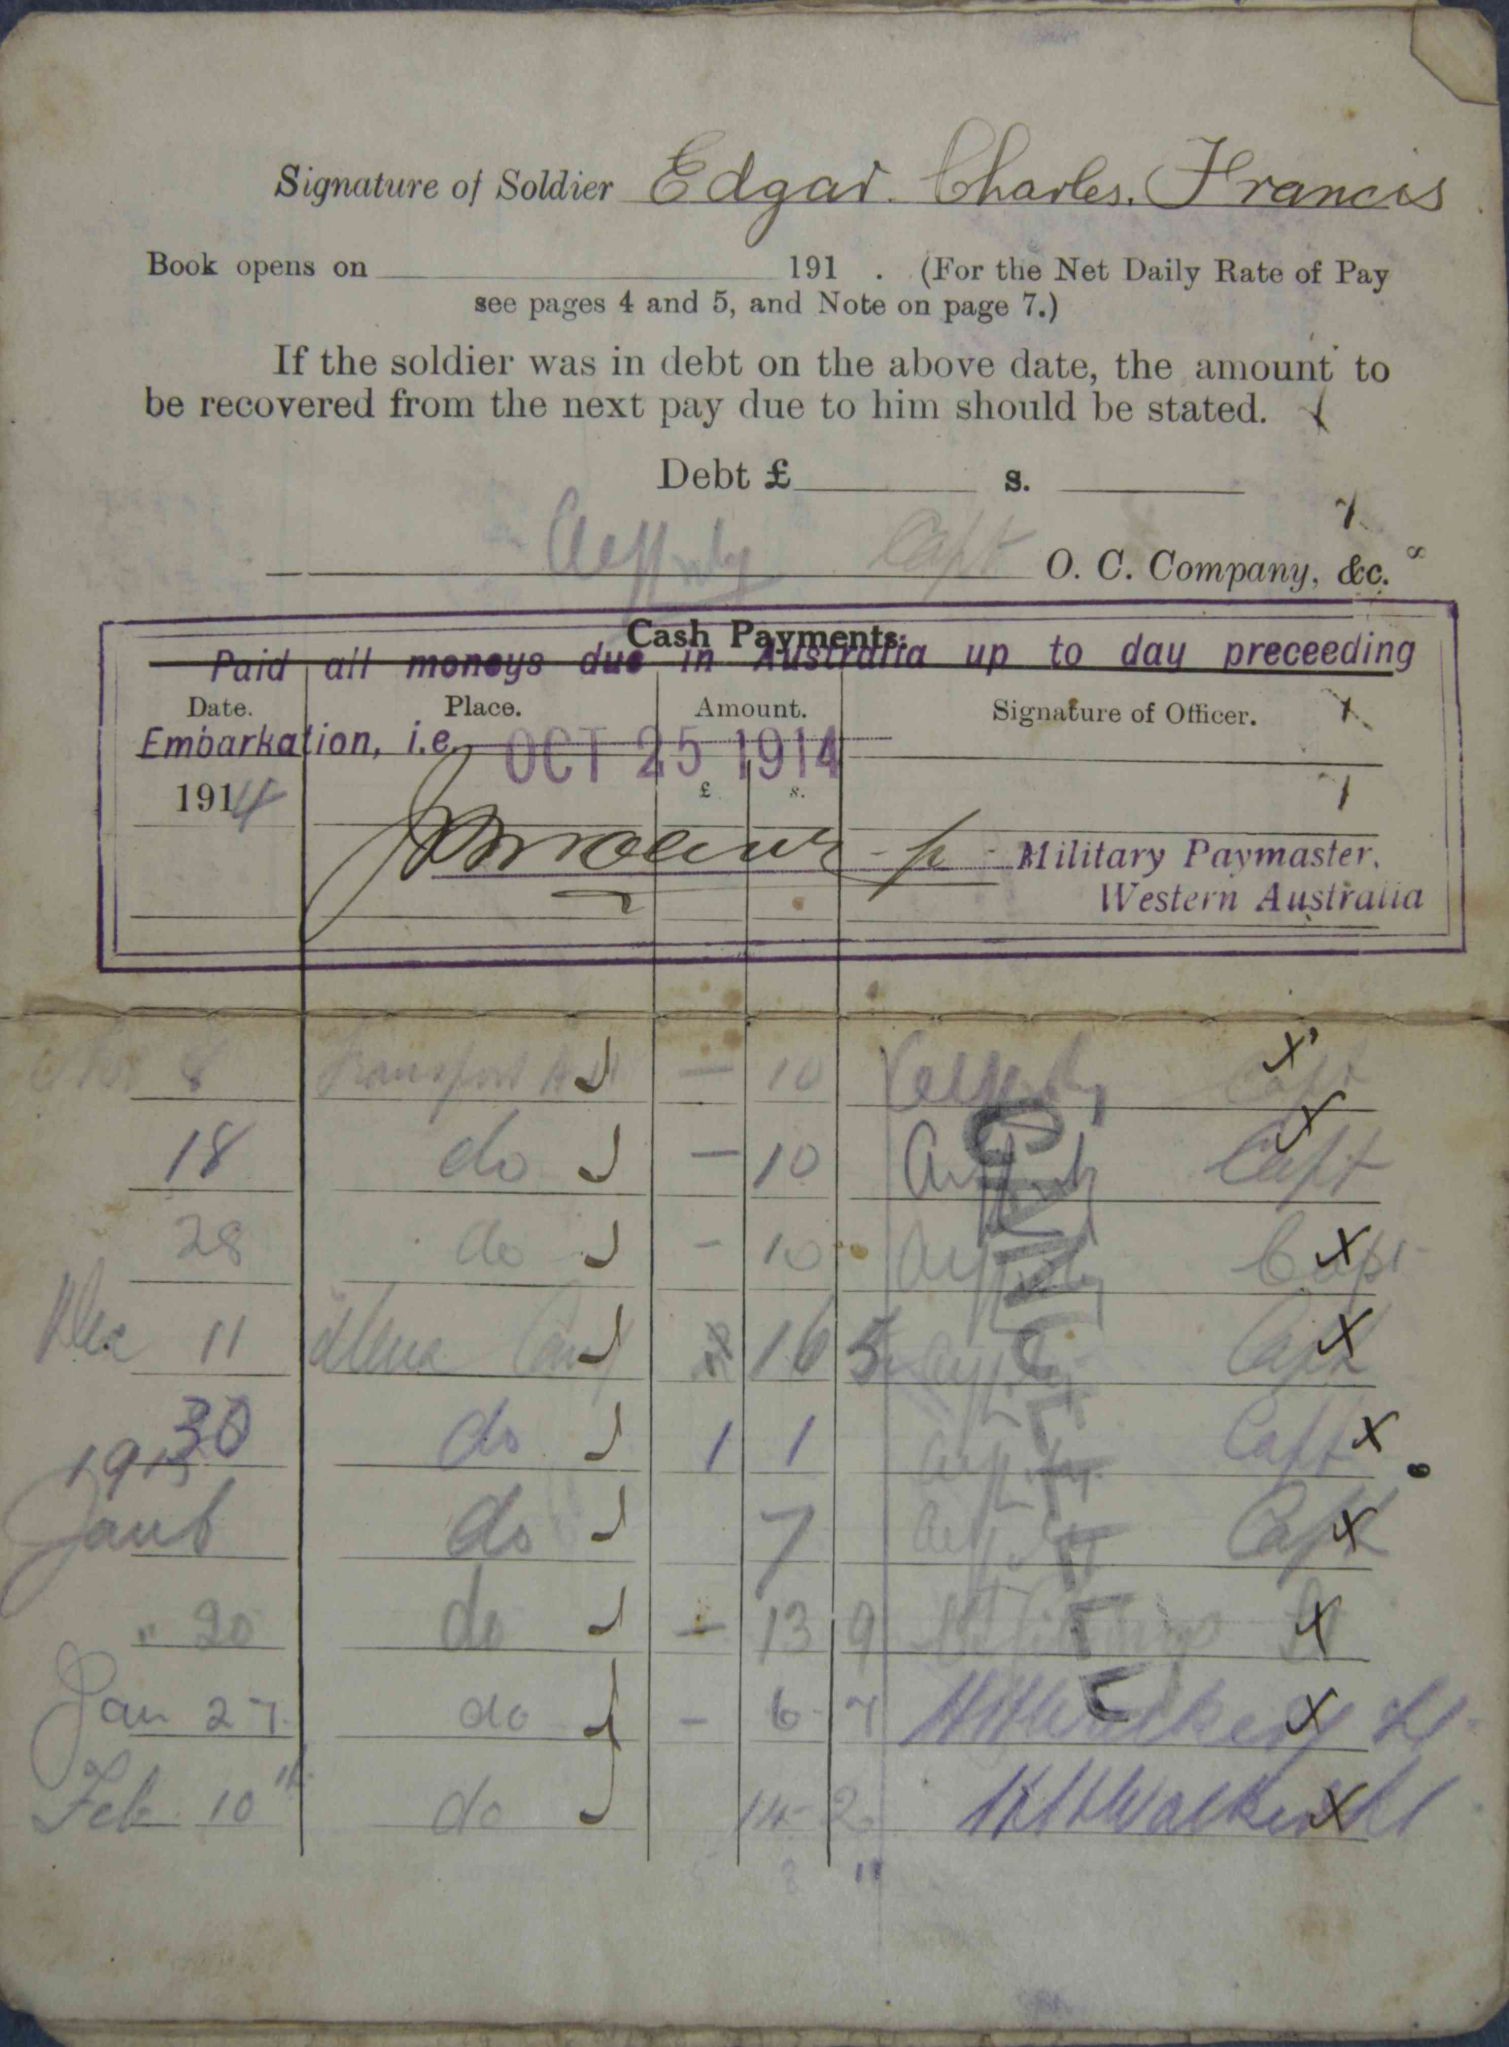 Signature of Soldier Edgar. Charles. Francis
Book opens on 191 . (For the Net Daily Rate of Pay
see pages 4 and 5, and Note on page 7.)
If the soldier was in debt on the above date, the amount to
be recovered from the next pay due to him should be stated.
Debt £ s.
Capt O. C. Company, &c.
Cash Payments.
Paid all moneys due in Australia up to day preceeding
Date. Place. Amount. Signature of Officer.
Embarkation, i.e. OCT 25 1914
1914 £ s.
Military Paymaster,
Western Australia
8 Transport 10 Capt
18 do - 10 Capt
28 do - 10 Capt
Dec 11 Mena Camp 16 5 Capt
30 do 1 1 Capt
1915
Jan 6 do 7 Capt
" 20 do - 13 9 Lt
Jan 27. do - 6 7 Lt
Feb 10th do 14 2 Lt
5 8 11